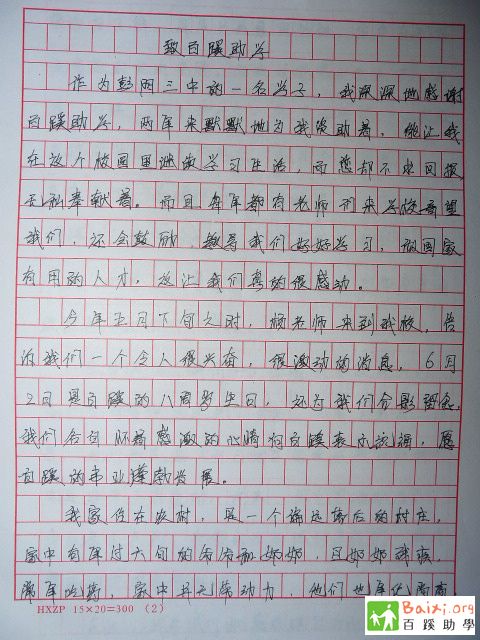 致百蹊助学
作为彭阳三中的一名学子，我深深地感谢
百蹊助学，两年来默默地为我资助着，能让我
在这个校园里进修学习生活，而您却不求回报
无私奉献着。而且每年都有老师们来学校看望
我们，还会鼓励，教导我们好好学习，做国家
有用的人才，这让我们真的很感动。
今年五月下旬之时，杨老师来到我校，告
诉我们一个令人很兴奋，很激动的消息，6月
2日是百蹊的八周岁生日，还为我们合影留念，
我们各自怀着感激的心情向百蹊表示祝福，愿
百蹊的事业蓬勃发展。
我家住在农村，是一个偏远落后的村庄，
家中有年过六旬的爷爷和奶奶，且奶奶残疾，
常年吃药，家中并无劳动力，他们也年纪高
HXZP 15×20=300 (2)
Baixi.org
百蹊助學